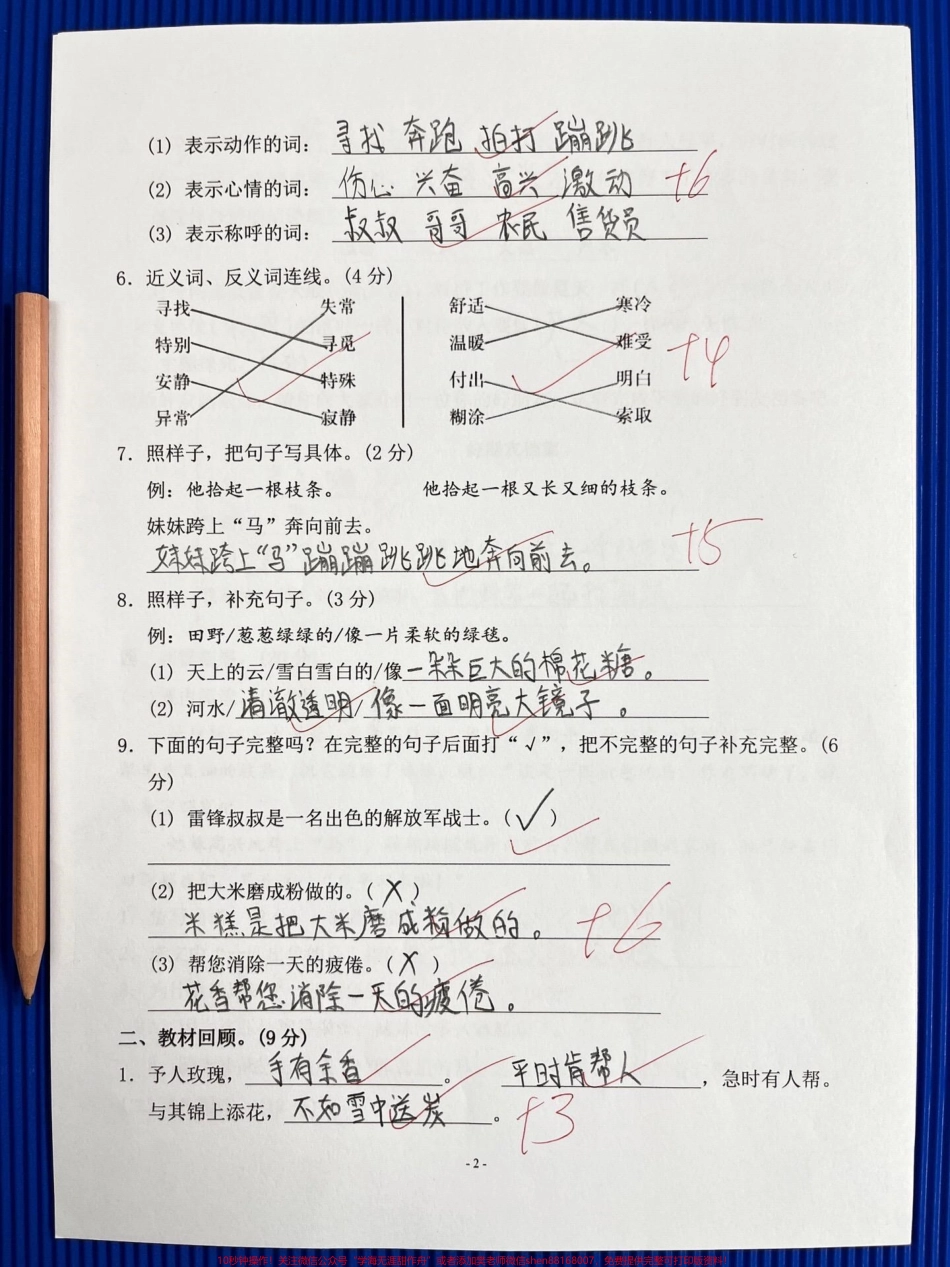 (1) 表示动作的词: 寻找 奔跑 拍打 蹦跳
(2) 表示心情的词: 伤心 兴奋 高兴 激动 +6
(3) 表示称呼的词: 叔叔 哥哥 农民 售货员
6. 近义词、反义词连线。(4 分)
寻找 失常 舒适 寒冷
特别 寻觅 温暖 难受 +4
安静 特殊 付出 明白
异常 寂静 糊涂 索取
7. 照样子，把句子写具体。(2 分)
例: 他拾起一根枝条。 他拾起一根又长又细的枝条。
妹妹跨上“马”奔向前去。
妹妹跨上“马”蹦蹦跳跳地奔向前去。 +5
8. 照样子，补充句子。(3 分)
例: 田野/葱葱绿绿的/像一片柔软的绿毯。
(1) 天上的云/雪白雪白的/像一朵朵巨大的棉花糖。
(2) 河水/清澈透明/像一面明亮大镜子。
9. 下面的句子完整吗？在完整的句子后面打“√”，把不完整的句子补充完整。(6
分)
(1) 雷锋叔叔是一名出色的解放军战士。(√)
(2) 把大米磨成粉做的。(X)
米糕是把大米磨成粉做的。 +6
(3) 帮您消除一天的疲倦。(X)
花香帮您消除一天的疲倦。
二、教材回顾。(9 分)
1. 予人玫瑰，手有余香。 平时肯帮人，急时有人帮。
与其锦上添花，不如雪中送炭。 +3
- 2 -
10秒钟操作！关注微信公众号“学海无涯甜作舟”或者添加宋老师微信shen88168007，免费提供完整可打印版资料！